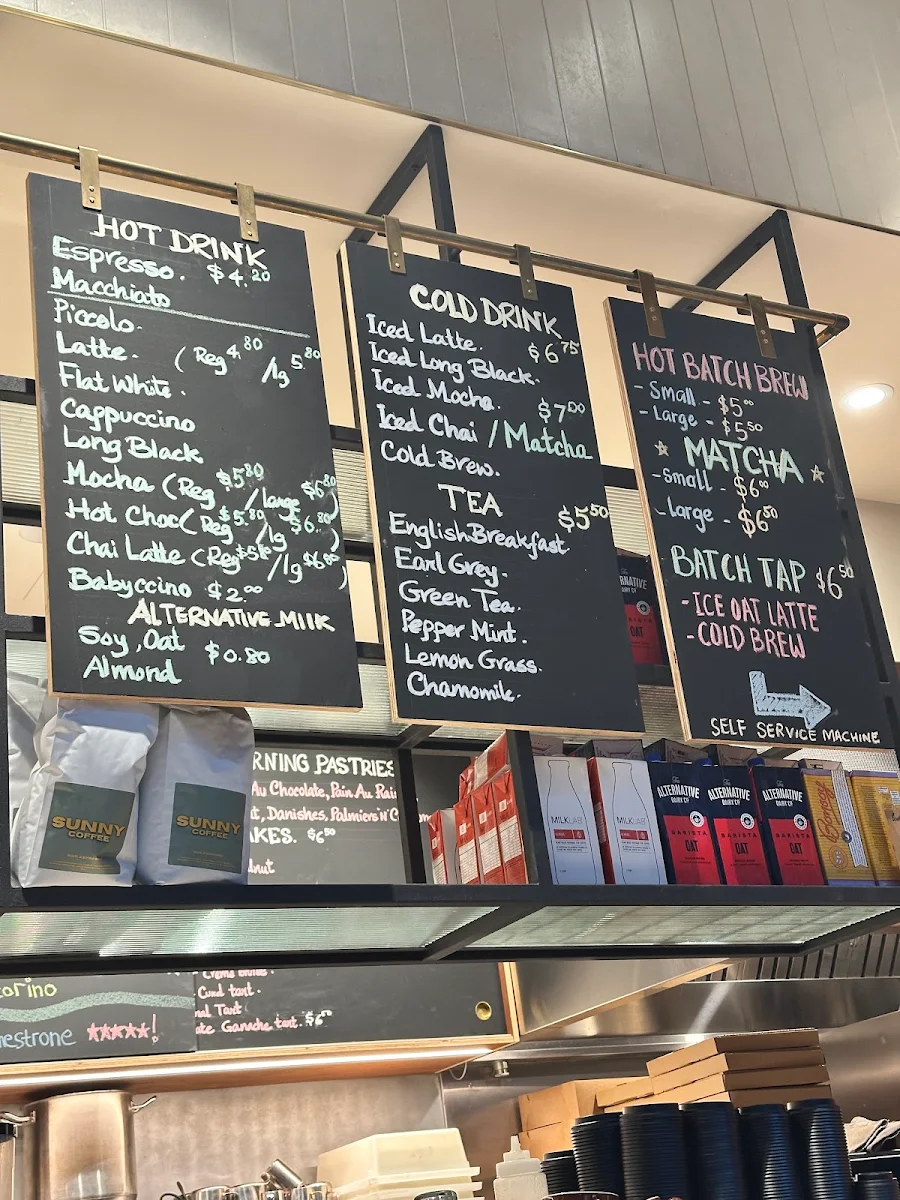 HOT DRINK
Espresso. $4.20
Macchiato
Piccolo.
Latte. (Reg 4.80 /lg 5.80
Flat White.
Cappuccino
Long Black
Mocha (Reg $5.80 /large $6.80)
Hot Choc (Reg $5.80 /lg $6.80)
Chai Latte (Reg $5.80 /lg $6.80)
Babyccino $2.00
ALTERNATIVE MILK
Soy, Oat $0.80
Almond
COLD DRINK
Iced Latte. $6.75
Iced Long Black.
Iced Mocha. $7.00
Iced Chai / Matcha
Cold Brew.
TEA $5.50
English Breakfast.
Earl Grey.
Green Tea.
Pepper Mint.
Lemon Grass.
Chamomile.
HOT BATCH BREW
- Small - $5.00
- Large - $5.50
MATCHA
- Small - $6.00
- Large - $6.50
BATCH TAP $6.50
- ICE OAT LATTE
- COLD BREW
SELF SERVICE MACHINE
SUNNY
COFFEE
SUNNY
COFFEE
RNING PASTRIES
Au Chocolate, Pain Au Rai
t, Danishes, Palmiers n' C
AKES. $6.50
nut
MILKLAB
MILKLAB
The
ALTERNATIVE
DAIRY CO
BARISTA
OAT
ALTERNATIVE
DAIRY CO
BARISTA
OAT
ALTERNATIVE
DAIRY CO
BARISTA
OAT
Bonsoy
orino
nestrone
Curd tart.
nal Tart
ate Ganache tart. $6.50